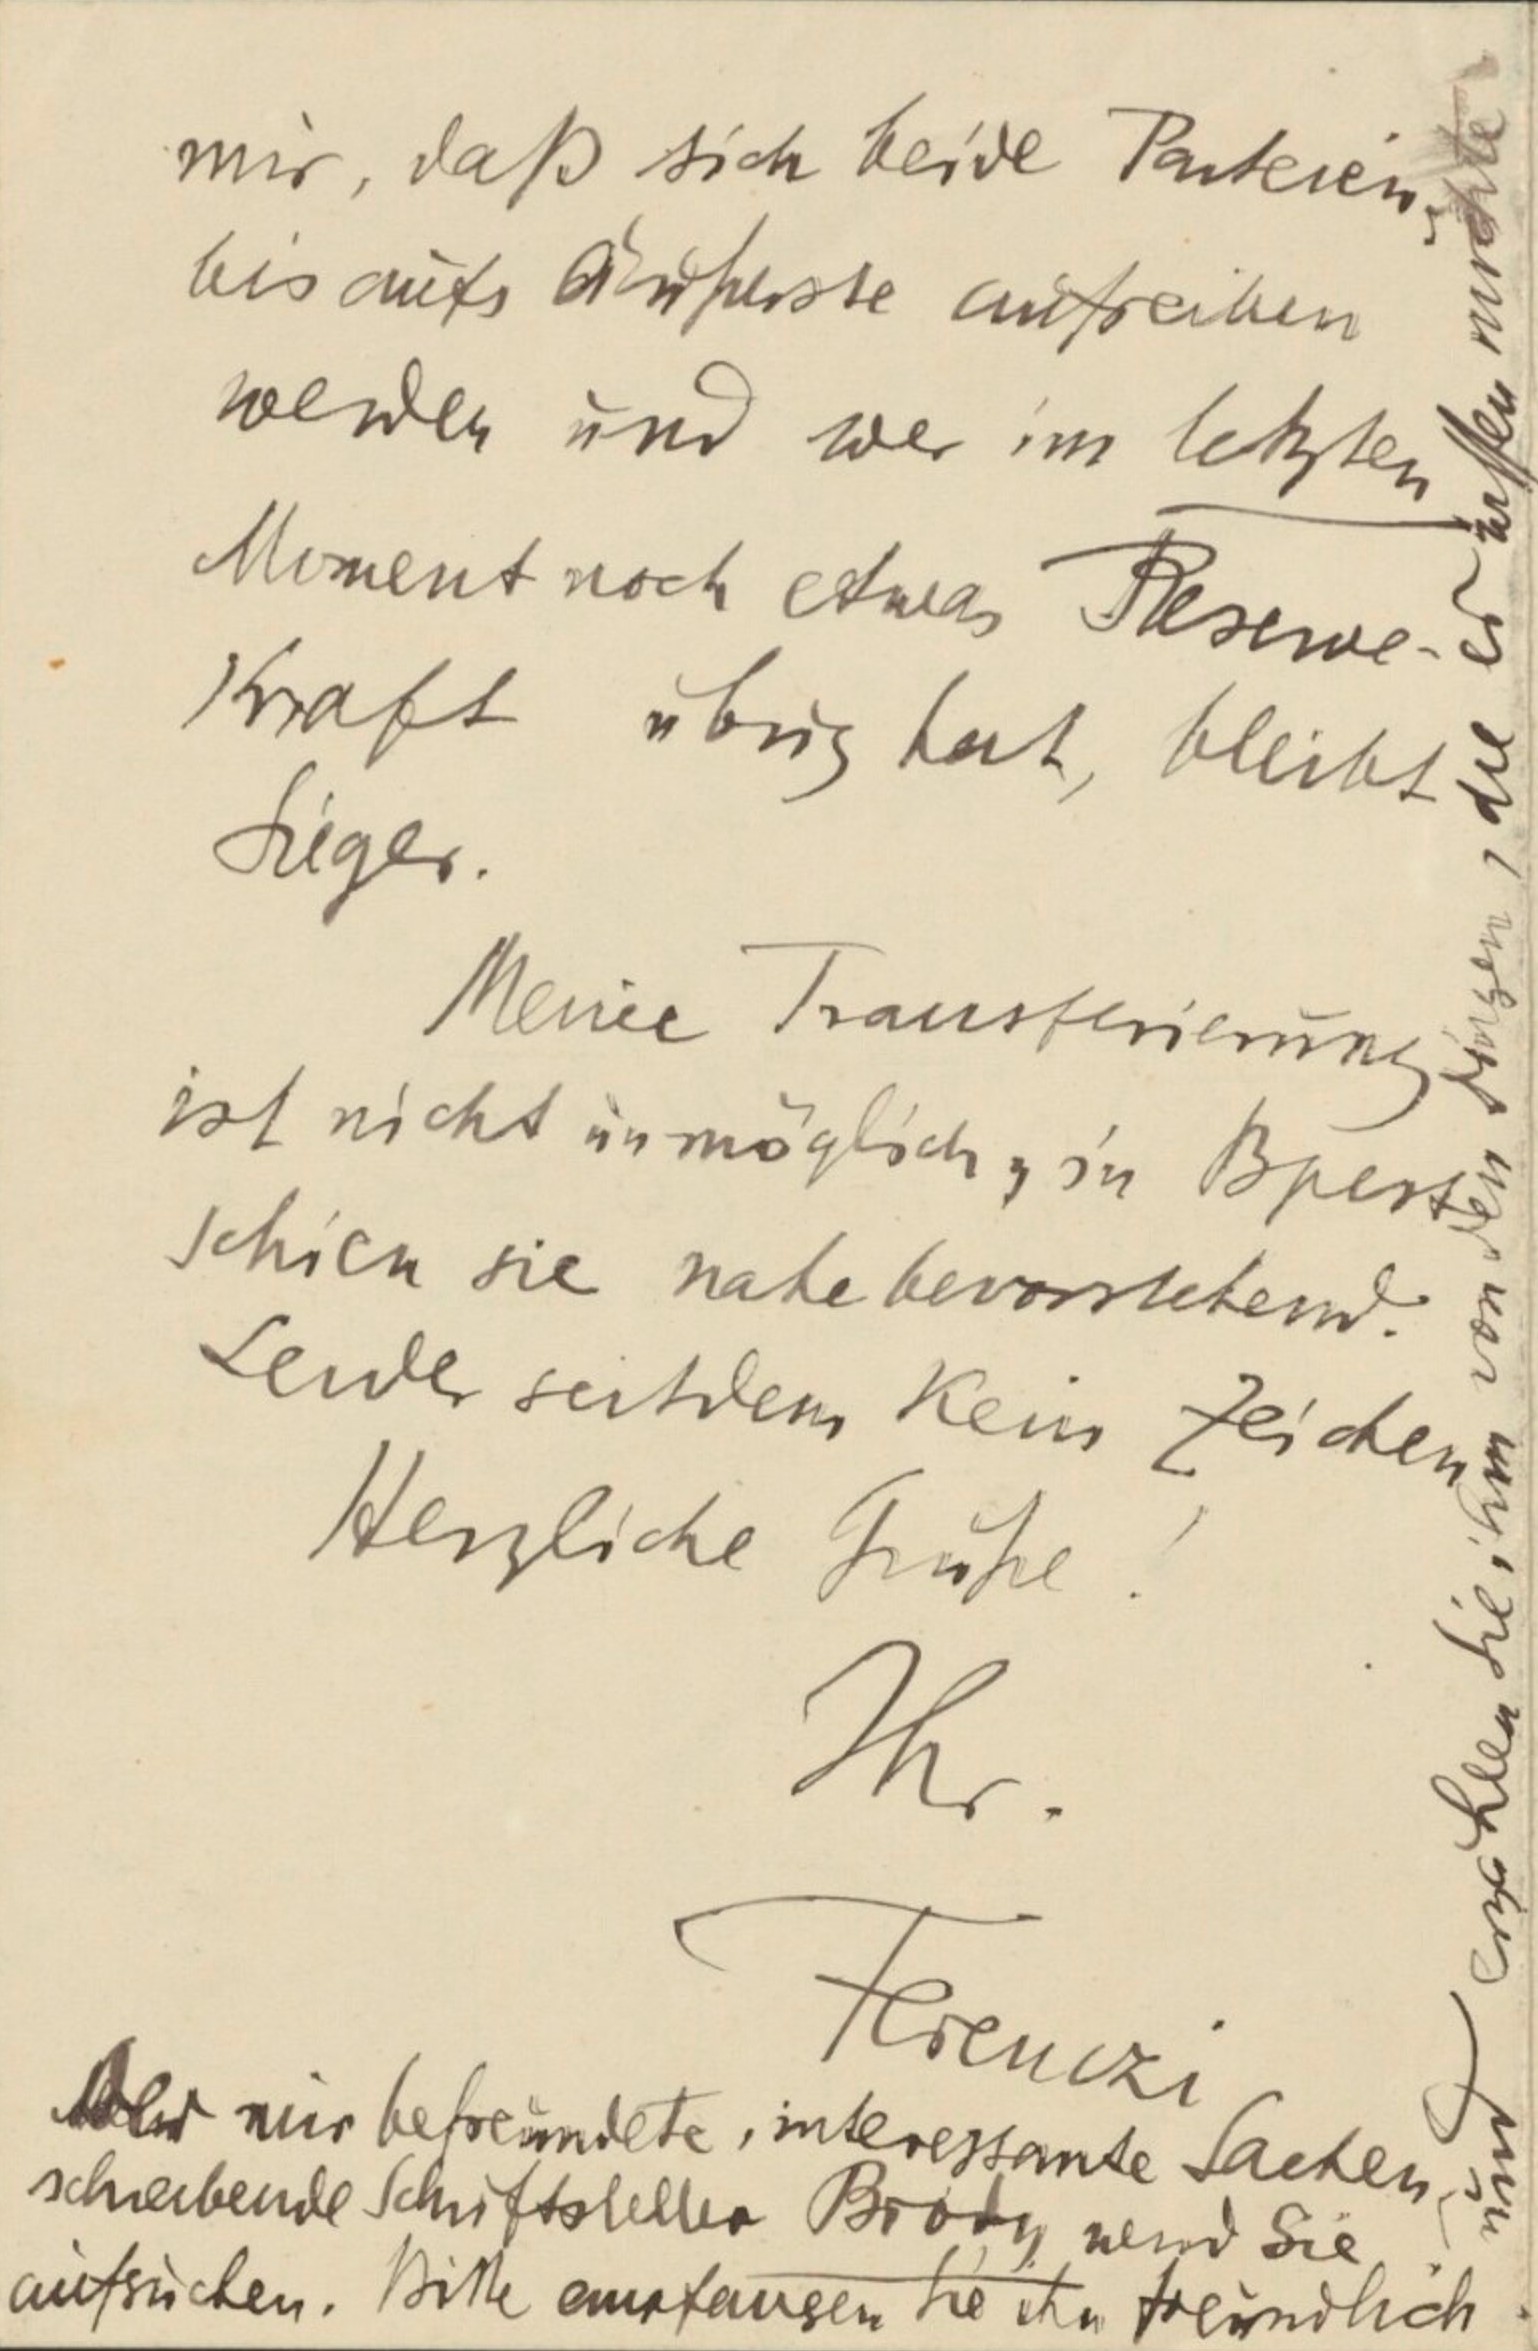 mir, daß sich beide Parteien
bis aufs Äußerste aufreiben
werden und wer im letzten
Moment noch etwas Reserve-
Kraft übrig hat, bleibt
Sieger.
Meine Transferierung
ist nicht unmöglich, in Bpest
schien sie nahe bevorstehend.
Leider seitdem kein Zeichen
Herzliche Grüße!
Ihr.
Ferenczi
Der mir befreundete, interessante Sachen
schreibende Schriftsteller Bródy wird Sie
aufsuchen. Bitte empfangen Sie ihn freundlich
und erzählen Sie ihm von den Dingen, die er wissen möchte